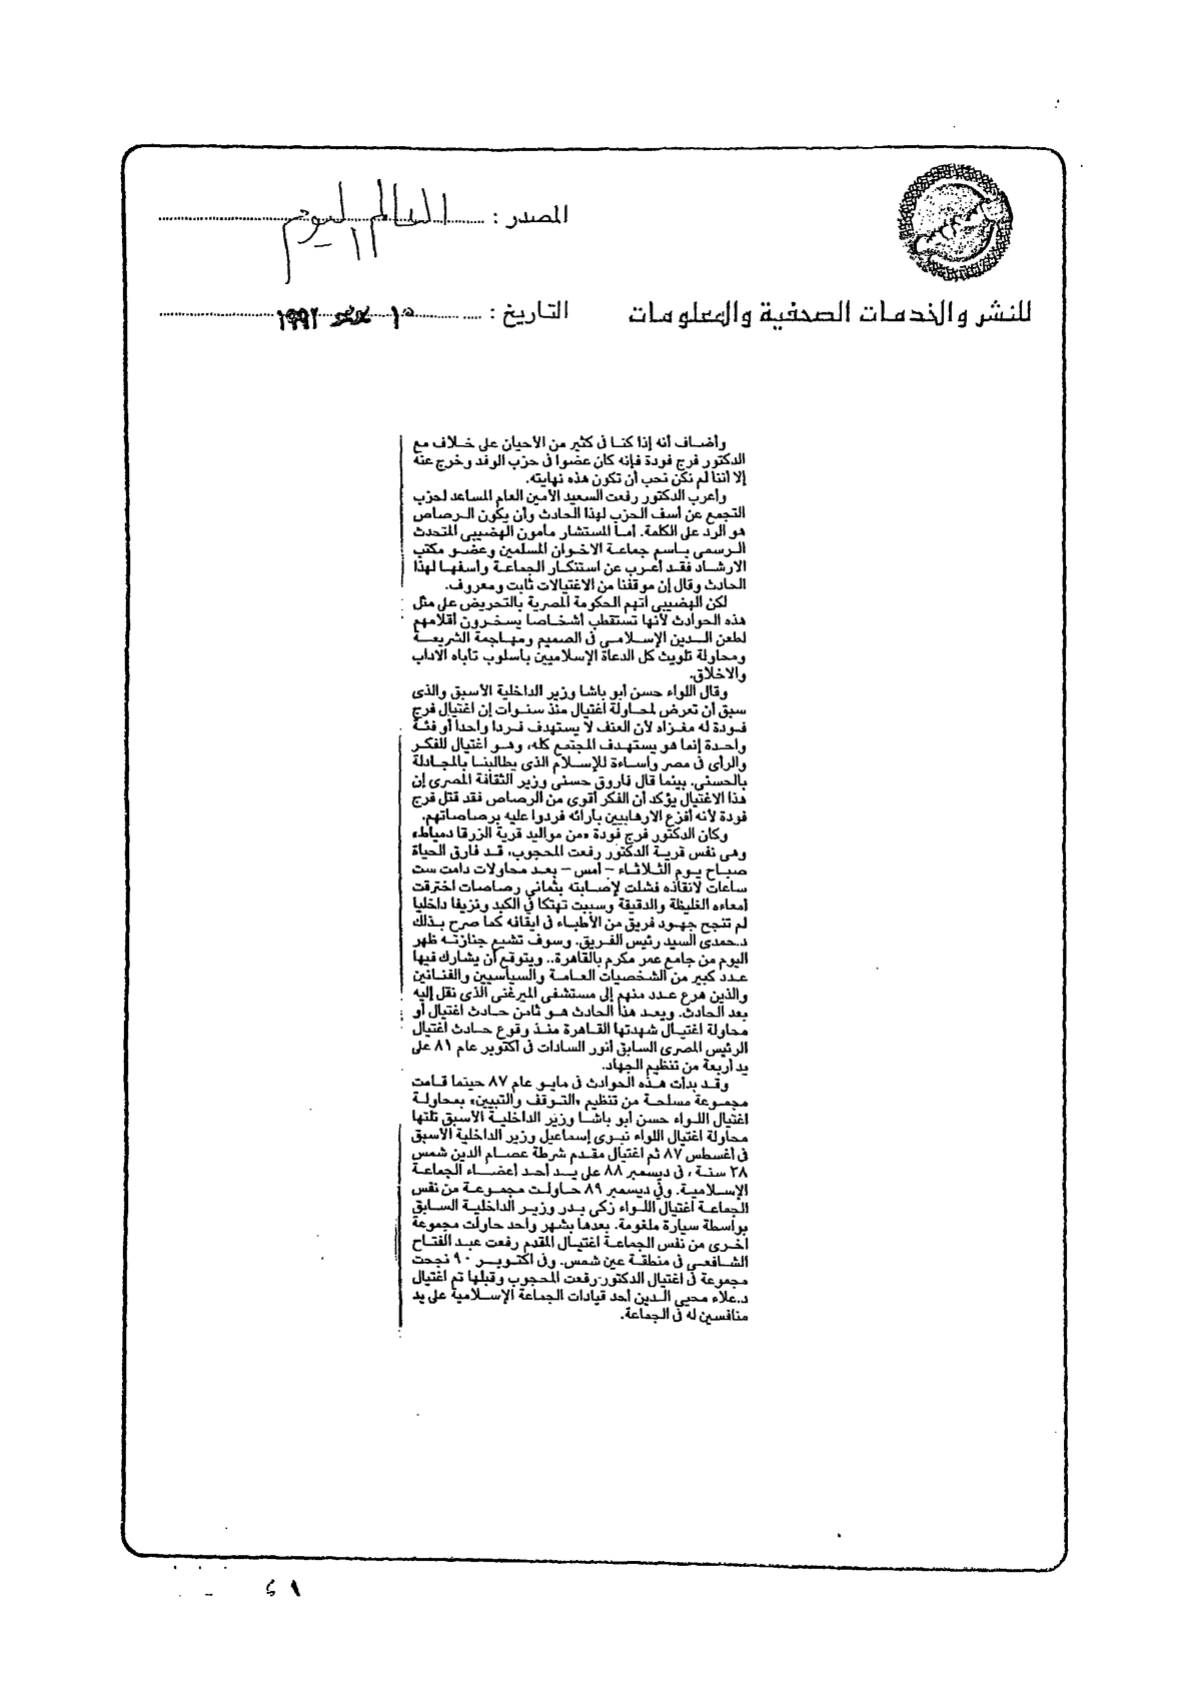 المصدر : العالم اليوم
للنشر والخدمات الصحفية والمعلومات
التاريخ : ١٩٩٢
وأضاف أنه إذا كنا فى كثير من الأحيان على خلاف مع
الدكتور فرج فودة فإنه كان عضوا فى حزب الوفد وخرج عنه
إلا أننا لم نكن نحب أن تكون هذه نهايته.
وأعرب الدكتور رفعت السعيد الأمين العام المساعد لحزب
التجمع عن أسف الحزب لهذا الحادث وأن يكون الرصاص
هو الرد على الكلمة. أما المستشار مأمون الهضيبى المتحدث
الرسمى باسم جماعة الاخوان المسلمين وعضو مكتب
الارشاد فقد أعرب عن استنكار الجماعة وأسفها لهذا
الحادث وقال إن موقفنا من الاغتيالات ثابت ومعروف.
لكن الهضيبى اتهم الحكومة المصرية بالتحريض على مثل
هذه الحوادث لأنها تستقطب أشخاصا يسخرون أقلامهم
لطعن الدين الإسلامى فى الصميم ومهاجمة الشريعة
ومحاولة تلويث كل الدعاة الإسلاميين بأسلوب تأباه الاداب
والاخلاق.
وقال اللواء حسن أبو باشا وزير الداخلية الأسبق والذى
سبق أن تعرض لمحاولة اغتيال منذ سنوات إن اغتيال فرج
فودة له مغزاه لأن العنف لا يستهدف فردا واحدا أو فئة
واحدة إنما هو يستهدف المجتمع كله، وهو اغتيال للفكر
والرأى فى مصر وإساءة للإسلام الذى يطالبنا بالمجادلة
بالحسنى. بينما قال فاروق حسنى وزير الثقافة المصرى إن
هذا الاغتيال يؤكد أن الفكر أقوى من الرصاص فقد قتل فرج
فودة لأنه أفزع الارهابيين بآرائه فردوا عليه برصاصاتهم.
وكان الدكتور فرج فودة «من مواليد قرية الزرقا دمياط»
وهى نفس قرية الدكتور رفعت المحجوب، قد فارق الحياة
صباح يوم الثلاثاء – أمس – بعد محاولات دامت ست
ساعات لانقاذه فشلت لإصابته بثمانى رصاصات اخترقت
أمعاءه الغليظة والدقيقة وسببت تهتكا فى الكبد ونزيفا داخليا
لم تنجح جهود فريق من الأطباء فى ايقافه كما صرح بذلك
د.حمدى السيد رئيس الفريق. وسوف تشيع جنازته ظهر
اليوم من جامع عمر مكرم بالقاهرة.. ويتوقع أن يشارك فيها
عدد كبير من الشخصيات العامة والسياسيين والفنانين
والذين هرع عدد منهم إلى مستشفى الميرغنى الذى نقل إليه
بعد الحادث. ويعد هذا الحادث هو ثامن حادث اغتيال أو
محاولة اغتيال شهدتها القاهرة منذ وقوع حادث اغتيال
الرئيس المصرى السابق أنور السادات فى اكتوبر عام ٨١ على
يد أربعة من تنظيم الجهاد.
وقد بدأت هذه الحوادث فى مايو عام ٨٧ حينما قامت
مجموعة مسلحة من تنظيم «التوقف والتبيين» بمحاولة
اغتيال اللواء حسن أبو باشا وزير الداخلية الأسبق تلتها
محاولة اغتيال اللواء نبوى إسماعيل وزير الداخلية الأسبق
فى أغسطس ٨٧ ثم اغتيال مقدم شرطة عصام الدين شمس
٢٨ سنة، فى ديسمبر ٨٨ على يد أحد أعضاء الجماعة
الإسلامية. وفى ديسمبر ٨٩ حاولت مجموعة من نفس
الجماعة اغتيال اللواء زكى بدر وزير الداخلية السابق
بواسطة سيارة ملغومة. بعدها بشهر واحد حاولت مجموعة
أخرى من نفس الجماعة اغتيال المقدم رفعت عبد الفتاح
الشافعى فى منطقة عين شمس. وفى اكتوبر ٩٠ نجحت
مجموعة فى اغتيال الدكتور رفعت المحجوب وقبلها تم اغتيال
د.علاء محيى الدين أحد قيادات الجماعة الإسلامية على يد
منافسين له فى الجماعة.